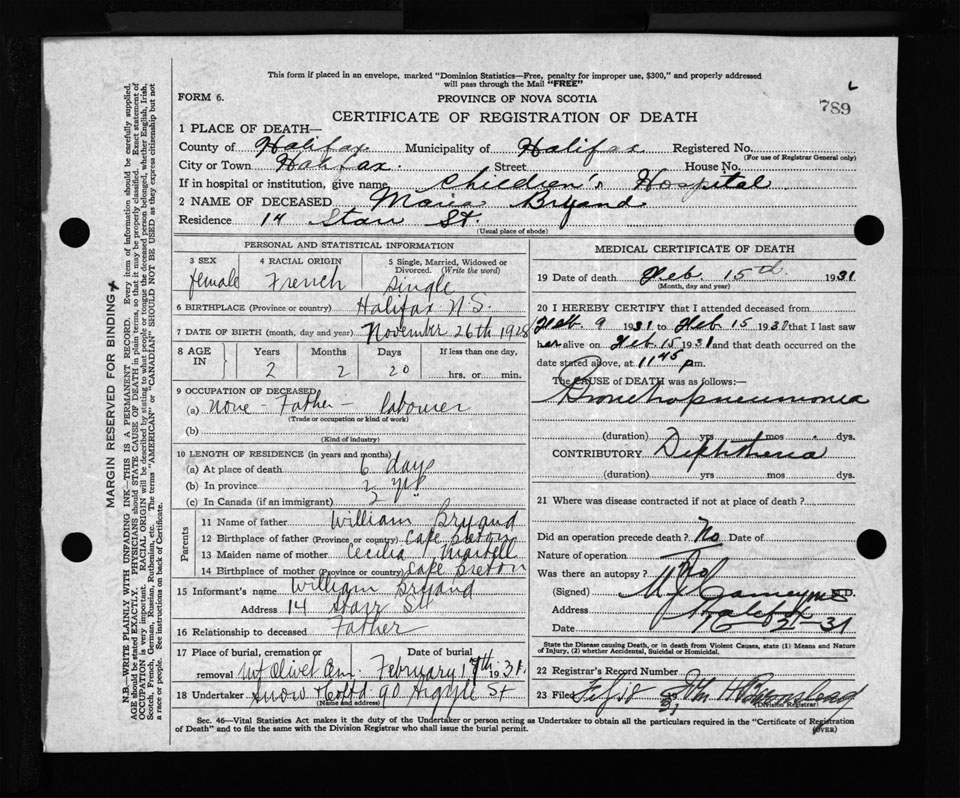 This form if placed in an envelope, marked "Dominion Statistics—Free, penalty for improper use, $300," and properly addressed
will pass through the Mail "FREE"
FORM 6.
PROVINCE OF NOVA SCOTIA
789
CERTIFICATE OF REGISTRATION OF DEATH
1 PLACE OF DEATH—
County of Halifax Municipality of Halifax Registered No.
(For use of Registrar General only)
City or Town Halifax Street House No.
If in hospital or institution, give name Children's Hospital
2 NAME OF DECEASED Marie Bryand
Residence 14 Starr St.
(Usual place of abode)
PERSONAL AND STATISTICAL INFORMATION
3 SEX 4 RACIAL ORIGIN 5 Single, Married, Widowed or
Divorced. (Write the word)
female French Single
6 BIRTHPLACE (Province or country) Halifax N.S.
7 DATE OF BIRTH (month, day and year) November 26th 1928
8 AGE IN Years Months Days If less than one day,
2 2 20 hrs. or min.
9 OCCUPATION OF DECEASED
(a) None - Father - labourer
(Trade or occupation or kind of work)
(b)
(Kind of industry)
10 LENGTH OF RESIDENCE (in years and months)
(a) At place of death 6 days
(b) In province 2 yrs
(c) In Canada (if an immigrant) 2
Parents
11 Name of father William Bryand
12 Birthplace of father (Province or country) Cape Breton
13 Maiden name of mother Cecilia Martell
14 Birthplace of mother (Province or country) Cape Breton
15 Informant's name William Bryand
Address 14 Starr St
16 Relationship to deceased Father
17 Place of burial, cremation or Date of burial
removal Mt Olivet Cem. February 17th 1931.
18 Undertaker Snow & Co Ltd 90 Argyle St
(Name and address)
MEDICAL CERTIFICATE OF DEATH
19 Date of death Feb. 15th 1931
(Month, day and year)
20 I HEREBY CERTIFY that I attended deceased from
Feb 9 1931 to Feb 15 1931 that I last saw
her alive on Feb 15 1931 and that death occurred on the
date stated above, at 11 45 pm.
The CAUSE of DEATH was as follows:—
Bronchopneumonia
(duration) yrs mos dys.
CONTRIBUTORY Diphtheria
(duration) yrs mos dys.
21 Where was disease contracted if not at place of death?
Did an operation precede death? No Date of
Nature of operation
Was there an autopsy? No
(Signed) M.D.
Address Halifax
Date
State the Disease causing Death, or in death from Violent Causes, state (1) Means and Nature
of Injury, (2) whether Accidental, Suicidal or Homicidal.
22 Registrar's Record Number
23 Filed Feb 18 31 Wm H
(Division Registrar)
Sec. 46—Vital Statistics Act makes it the duty of the Undertaker or person acting as Undertaker to obtain all the particulars required in the "Certificate of Registration
of Death" and to file the same with the Division Registrar who shall issue the burial permit.
(OVER)
MARGIN RESERVED FOR BINDING
N.B.—WRITE PLAINLY WITH UNFADING INK—THIS IS A PERMANENT RECORD. Every item of information should be carefully supplied.
AGE should be stated EXACTLY. PHYSICIANS should STATE CAUSE OF DEATH in plain terms, so that it may be properly classified. Exact statement of
OCCUPATION is very important. RACIAL ORIGIN will be described by stating to what people or tongue the deceased person belonged, whether English, Irish,
Scotch French, German, Russian, Ruthenian, etc. The terms "AMERICAN" or "CANADIAN" SHOULD NOT BE USED as they express citizenship but not
a race or people. See instructions on back of Certificate.